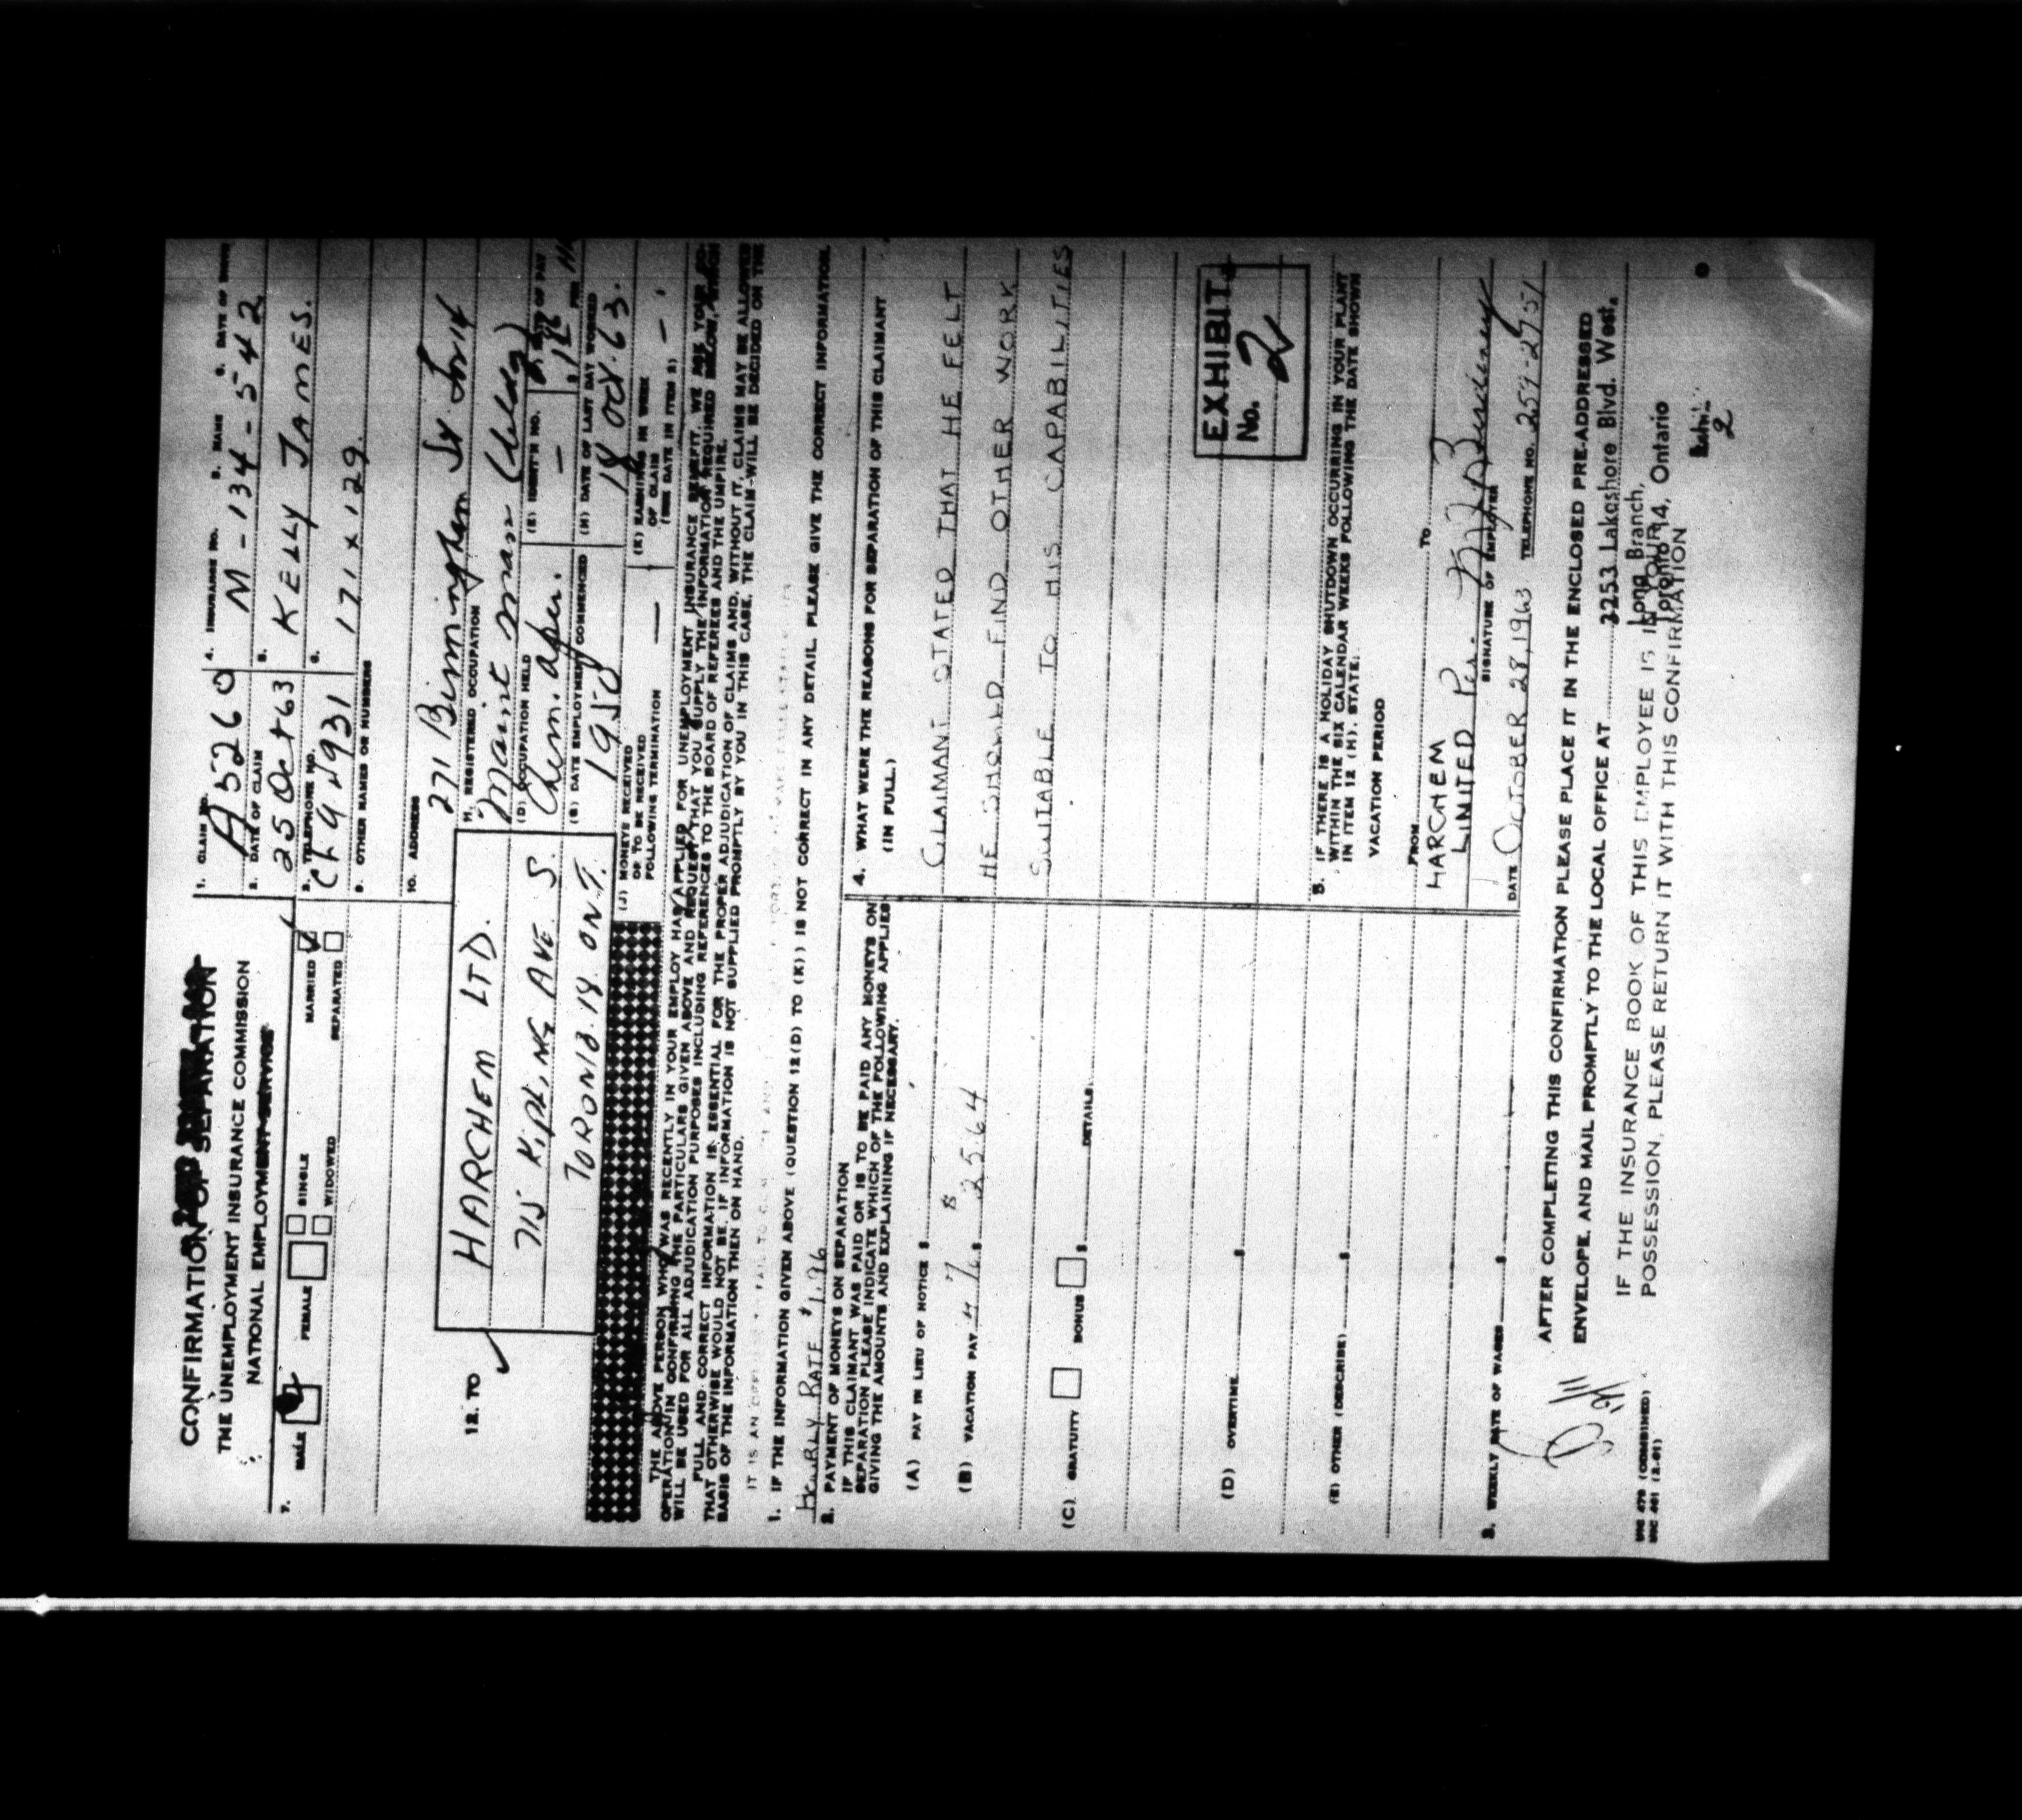 CONFIRMATION OF SEPARATION
THE UNEMPLOYMENT INSURANCE COMMISSION
NATIONAL EMPLOYMENT SERVICE
1. CLAIM NO. 4. INSURANCE NO. B. NAME C. DATE OF
A5260 M-134-542
2. DATE OF CLAIM 5.
25 Oct 63 KELLY JAMES.
3. TELEPHONE NO. 6.
CL94931 171 x 129.
7. MALE FEMALE SINGLE MARRIED
WIDOWED SEPARATED
9. OTHER NAMES OR NUMBERS
10. ADDRESS
271 Birmingham St
11. REGISTERED OCCUPATION
Maint man (
12. TO
HARCHEM LTD.
715 KIPLING AVE S.
TORONTO 18 ONT.
(D) OCCUPATION HELD (E) IDENT'N NO. OF PAY
Chem. oper. -
(G) DATE EMPLOYMENT COMMENCED (H) DATE OF LAST DAY WORKED
1950 18 Oct. 63.
(J) MONEYS RECEIVED
OR TO BE RECEIVED
FOLLOWING TERMINATION
(K) EARNINGS IN WEEK
OF CLAIM
(SEE DATE IN ITEM 2)
THE ABOVE PERSON WHO WAS RECENTLY IN YOUR EMPLOY HAS APPLIED FOR UNEMPLOYMENT INSURANCE BENEFIT. WE ASK YOUR CO-
OPERATION IN CONFIRMING THE PARTICULARS GIVEN ABOVE AND REQUEST THAT YOU SUPPLY THE INFORMATION REQUIRED BELOW, WHICH
WILL BE USED FOR ALL ADJUDICATION PURPOSES INCLUDING REFERENCES TO THE BOARD OF REFEREES AND THE UMPIRE.
FULL AND CORRECT INFORMATION IS ESSENTIAL FOR THE PROPER ADJUDICATION OF CLAIMS AND, WITHOUT IT, CLAIMS MAY BE ALLOWED
THAT OTHERWISE WOULD NOT BE. IF INFORMATION IS NOT SUPPLIED PROMPTLY BY YOU IN THIS CASE, THE CLAIM WILL BE DECIDED ON THE
BASIS OF THE INFORMATION THEN ON HAND.
IT IS AN
1. IF THE INFORMATION GIVEN ABOVE (QUESTION 12(D) TO (K)) IS NOT CORRECT IN ANY DETAIL, PLEASE GIVE THE CORRECT INFORMATION.
HOURLY RATE $1.96
2. PAYMENT OF MONEYS ON SEPARATION
IF THIS CLAIMANT WAS PAID OR IS TO BE PAID ANY MONEYS ON
SEPARATION PLEASE INDICATE WHICH OF THE FOLLOWING APPLIES
GIVING THE AMOUNTS AND EXPLAINING IF NECESSARY.
(A) PAY IN LIEU OF NOTICE $
(B) VACATION PAY 4% $ 25.64
(C) GRATUITY BONUS $ DETAILS
(D) OVERTIME $
(E) OTHER (DESCRIBE) $
3. WEEKLY RATE OF WAGES $
4. WHAT WERE THE REASONS FOR SEPARATION OF THIS CLAIMANT
(IN FULL.)
CLAIMANT STATED THAT HE FELT
HE SHOULD FIND OTHER WORK
SUITABLE TO HIS CAPABILITIES
EXHIBIT
No. 2
5. IF THERE IS A HOLIDAY SHUTDOWN OCCURRING IN YOUR PLANT
WITHIN THE SIX CALENDAR WEEKS FOLLOWING THE DATE SHOWN
IN ITEM 12 (H), STATE:
VACATION PERIOD
FROM TO
HARCHEM
LIMITED Per.
SIGNATURE OF EMPLOYER
DATE OCTOBER 28, 1963 TELEPHONE NO. 259-2751
AFTER COMPLETING THIS CONFIRMATION PLEASE PLACE IT IN THE ENCLOSED PRE-ADDRESSED
ENVELOPE, AND MAIL PROMPTLY TO THE LOCAL OFFICE AT 3253 Lakeshore Blvd. West.
Long Branch,
Toronto 14, Ontario
IF THE INSURANCE BOOK OF THIS EMPLOYEE IS IN YOUR
POSSESSION, PLEASE RETURN IT WITH THIS CONFIRMATION
UIC 479 (COMBINED)
2